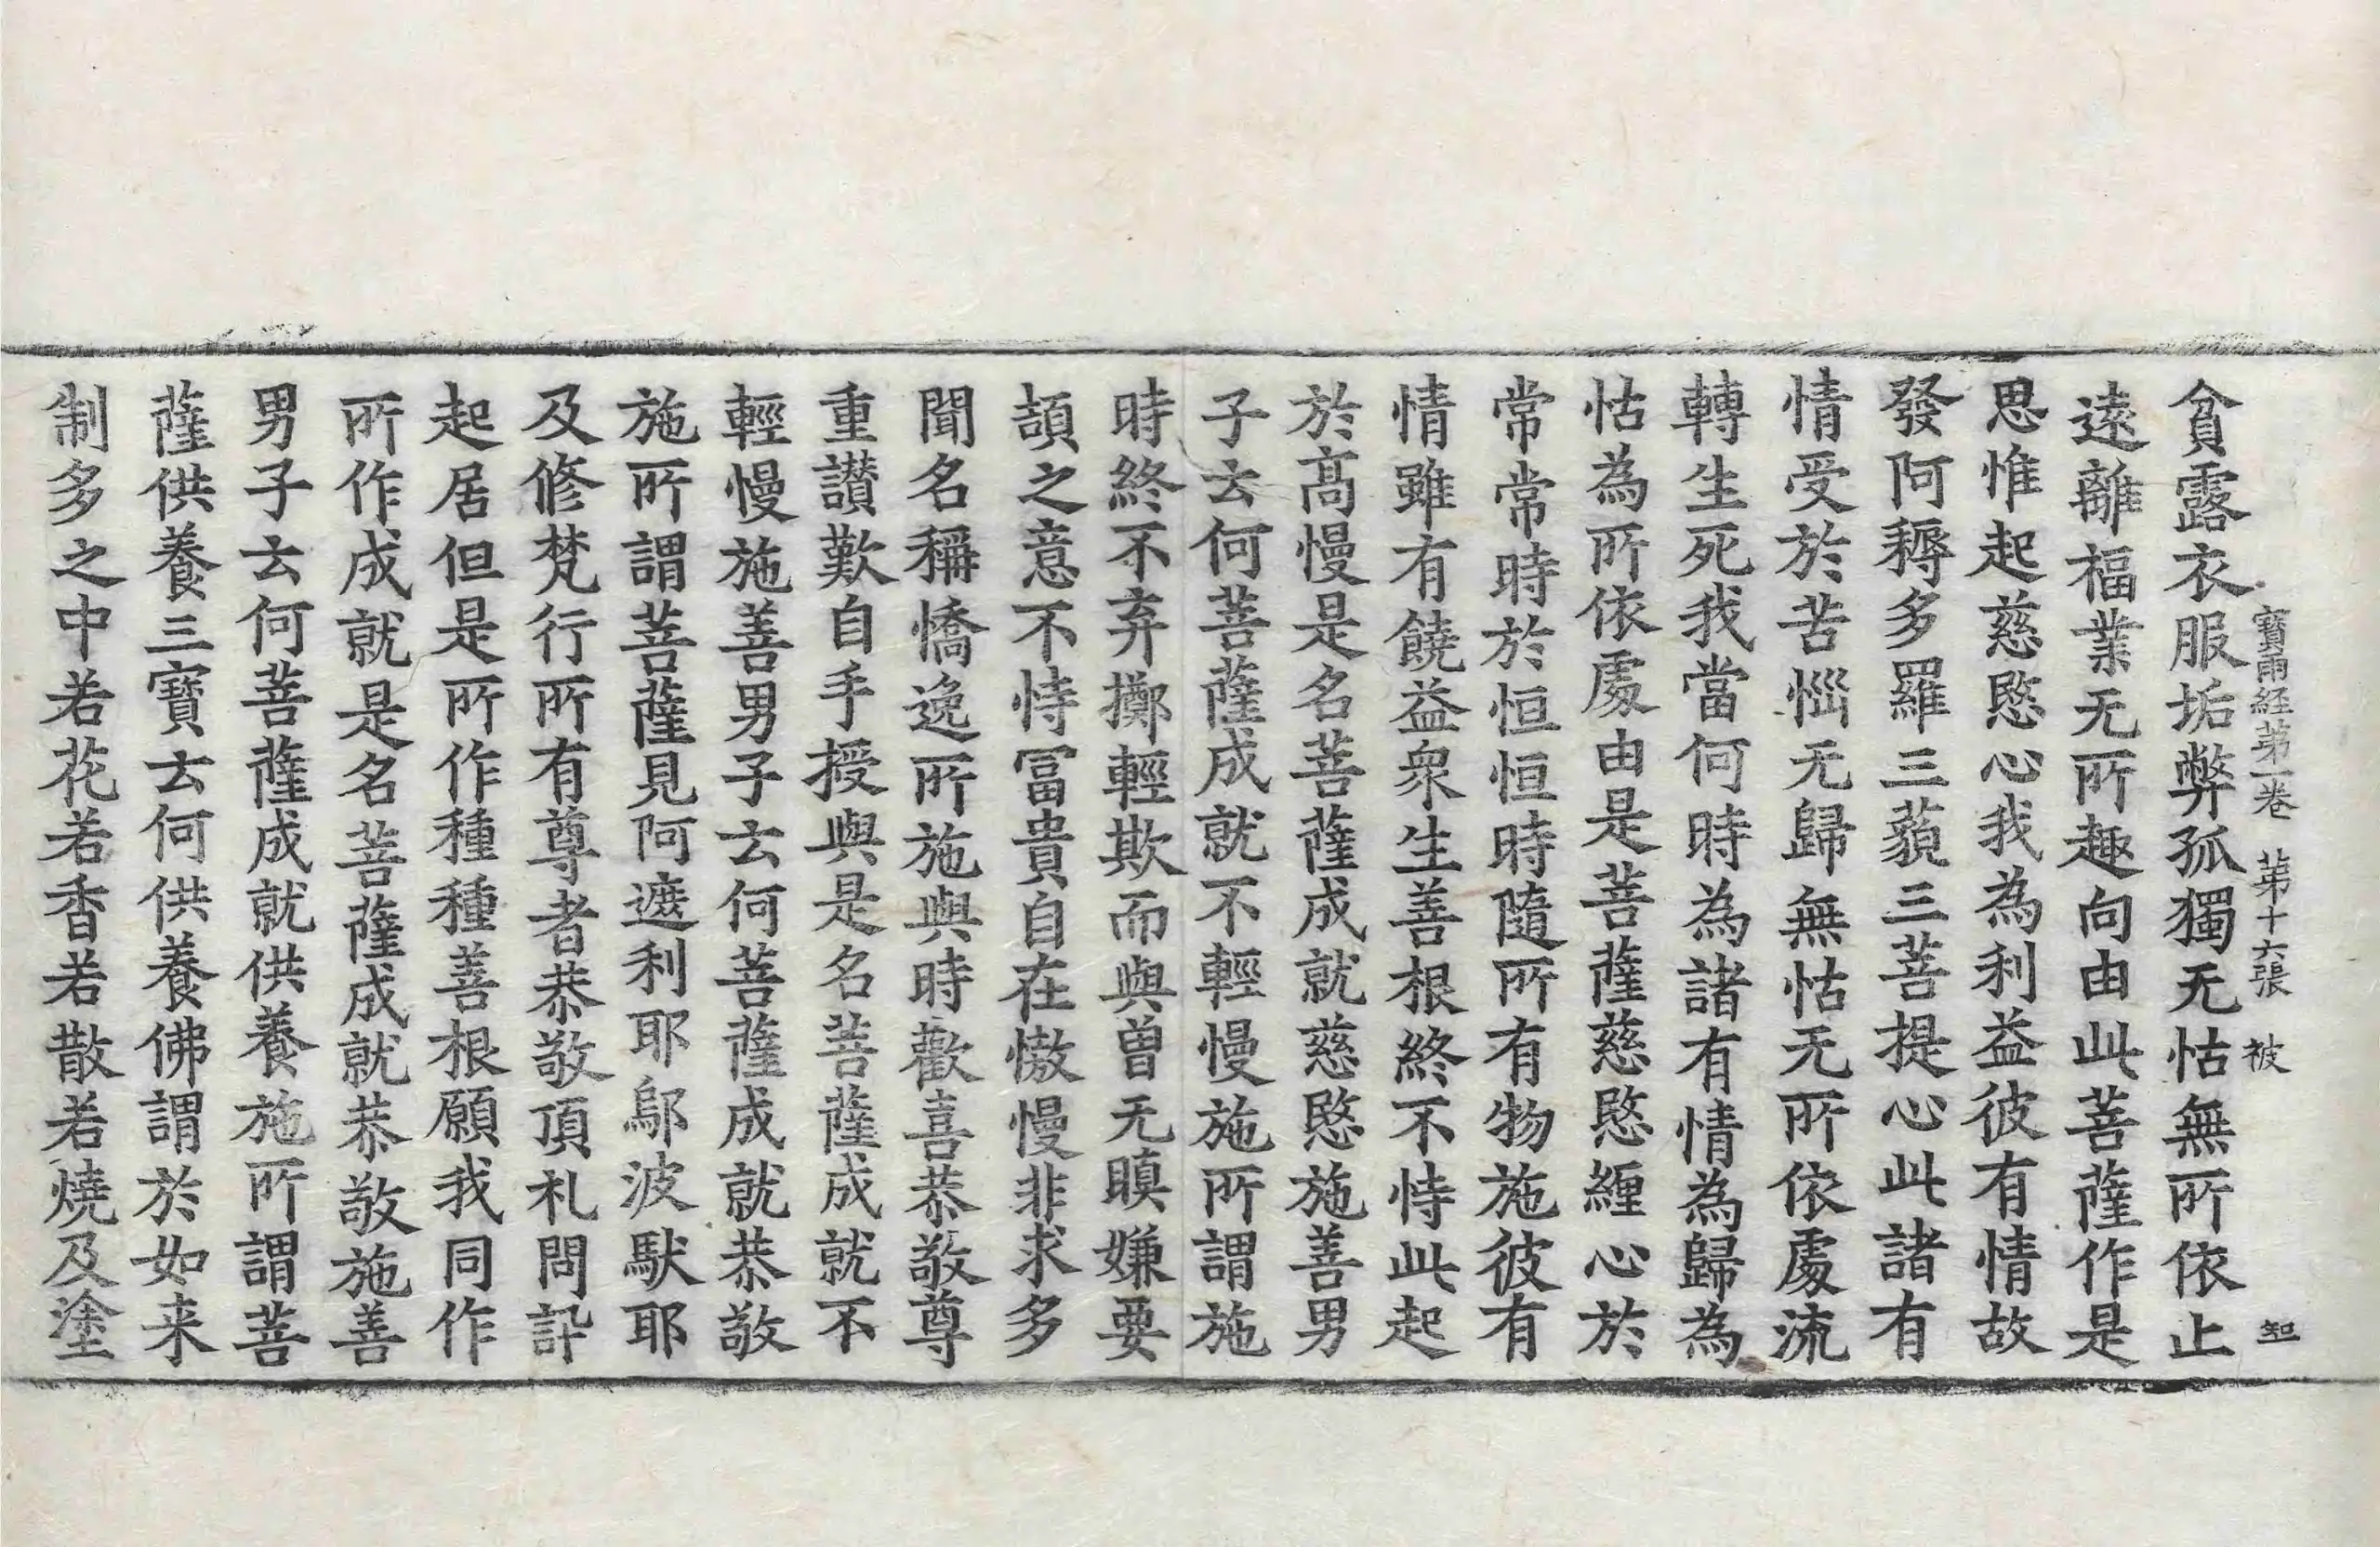 寶雨経苐一卷　苐十六張　被　知
貧露衣服垢弊孤獨无怙無所依止
遠離福業无所趣向由此菩薩作是
思惟起慈愍心我為利益彼有情故
發阿耨多羅三藐三菩提心此諸有
情受於苦惱无歸無怙无所依處流
轉生死我當何時為諸有情為歸為
怙為所依處由是菩薩慈愍纏心於
常常時於恒恒時隨所有物施彼有
情雖有饒益衆生善根終不恃此起
於髙慢是名菩薩成就慈愍施善男
子云何菩薩成就不輕慢施所謂施
時終不弃擲輕欺而與曽无瞋嫌要
頡之意不恃冨貴自在憿慢非求多
聞名稱憍逸所施與時歡喜恭敬尊
重讃歎自手授與是名菩薩成就不
輕慢施善男子云何菩薩成就恭敬
施所謂菩薩見阿遮利耶鄔波馱耶
及修梵行所有尊者恭敬頂礼問訃
起居但是所作種種善根願我同作
所作成就是名菩薩成就恭敬施善
男子云何菩薩成就供養施所謂菩
薩供養三寶云何供養佛謂於如来
制多之中若花若香若散若燒及塗